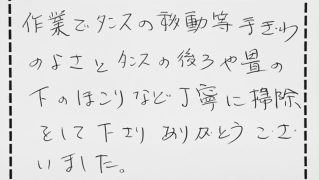 作業でタンスの移動等手ぎわ
のよさとタンスの後ろや畳の
下のほこりなど丁寧に掃除
をして下さりありがとうござ
いました。